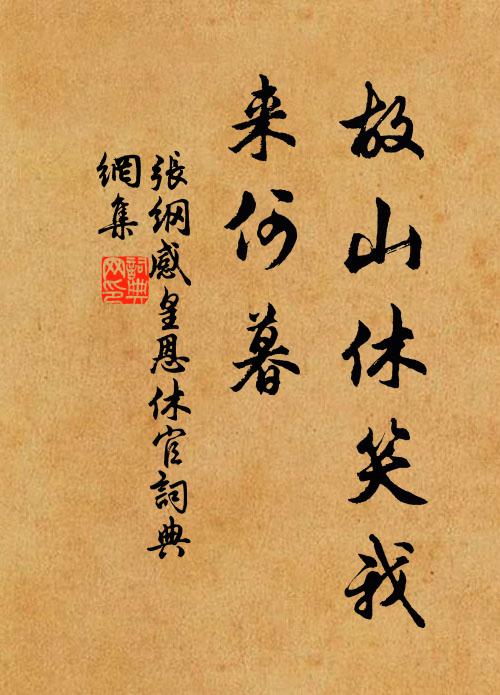 故山休笑我
来何暮
張綱感皇恩休官詞典
網集
詞典
网印